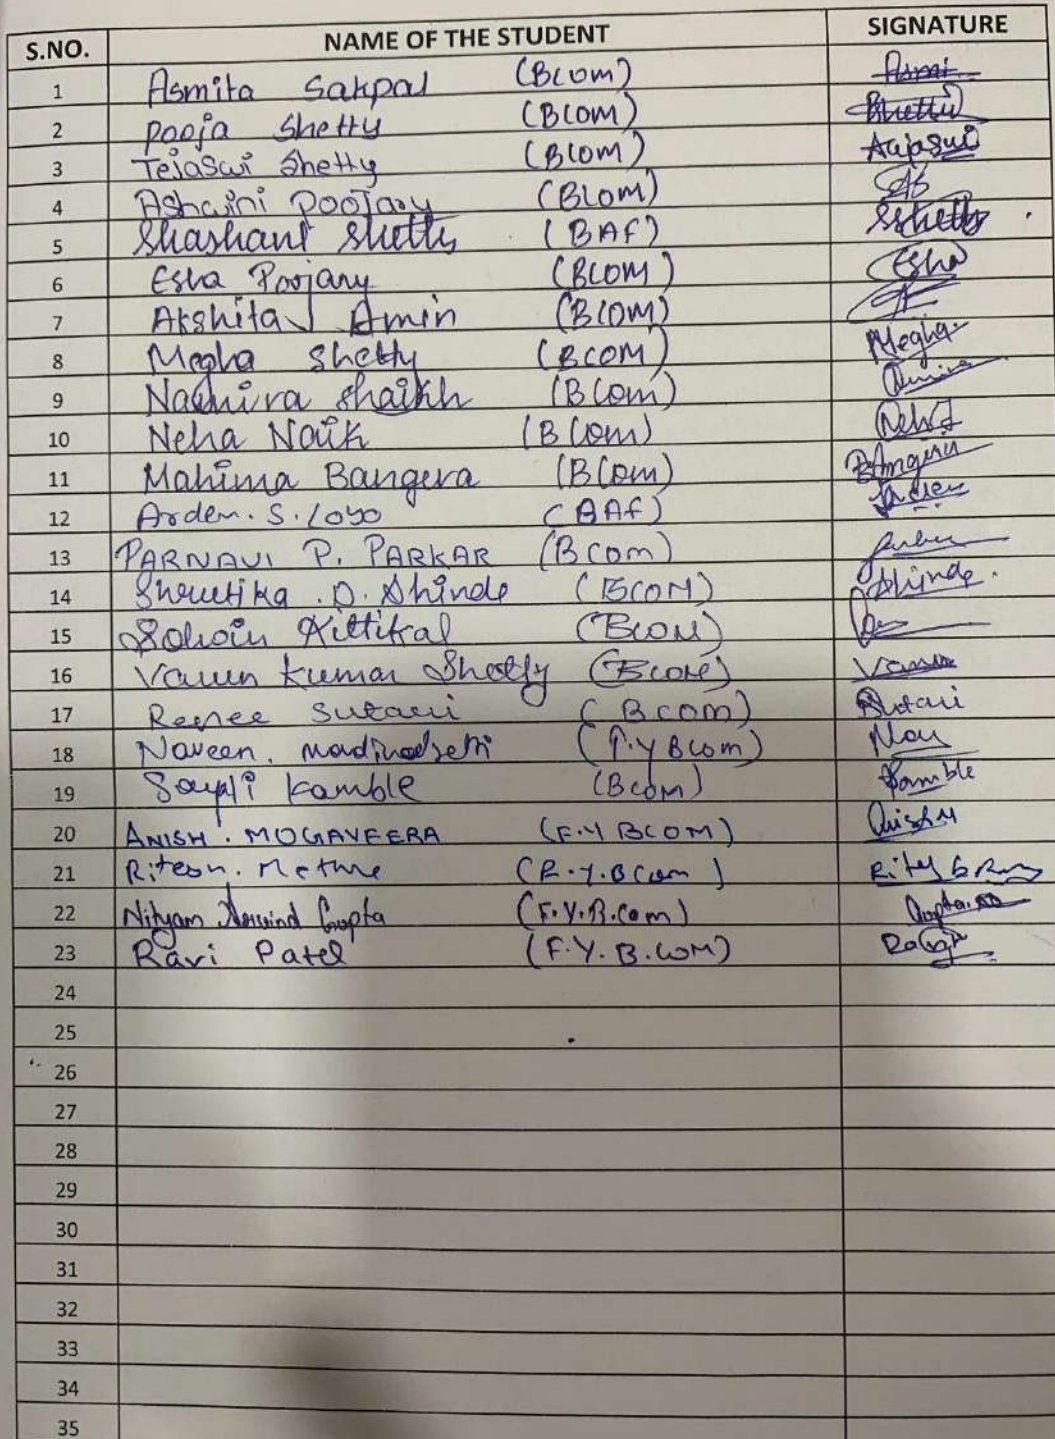 S.NO. NAME OF THE STUDENT SIGNATURE
1 Asmita Sakpal (BCOM) Asmi
2 Pooja Shetty (BCOM) Shetty
3 Tejaswi Shetty (BCOM)
4 Ashwini Poojary (BCOM)
5 Shashant Shetty (BAF) SShetty
6 Esha Poojary (BCOM) Esha
7 Akshita Amin (BCOM)
8 Megha Shetty (BCOM) Megha
9 Shaikh (BCom)
10 Neha Naik (BCom) Neha
11 Mahima Bangera (BCom) Bangera
12 Arden. S. Lobo (BAF) Arden
13 PARNAVI P. PARKAR (BCom)
14 Shrutika . D. Shinde (BCOM) Shinde.
15 (BCOM)
16 Varun Kumar Shetty (BCOM) Varun
17 Renee Sutari (BCOM) Sutari
18 Naveen. (T.Y BCom) Nav
19 Sayali Kamble (BCOM) Kamble
20 ANISH . MOGAVEERA (F.Y BCOM) Anish M
21 Ritesh. (F.Y.BCom)
22 Nityam Arvind Gupta (F.Y.B.Com) Gupta
23 Ravi Patel (F.Y.B.COM)
24
25
26
27
28
29
30
31
32
33
34
35